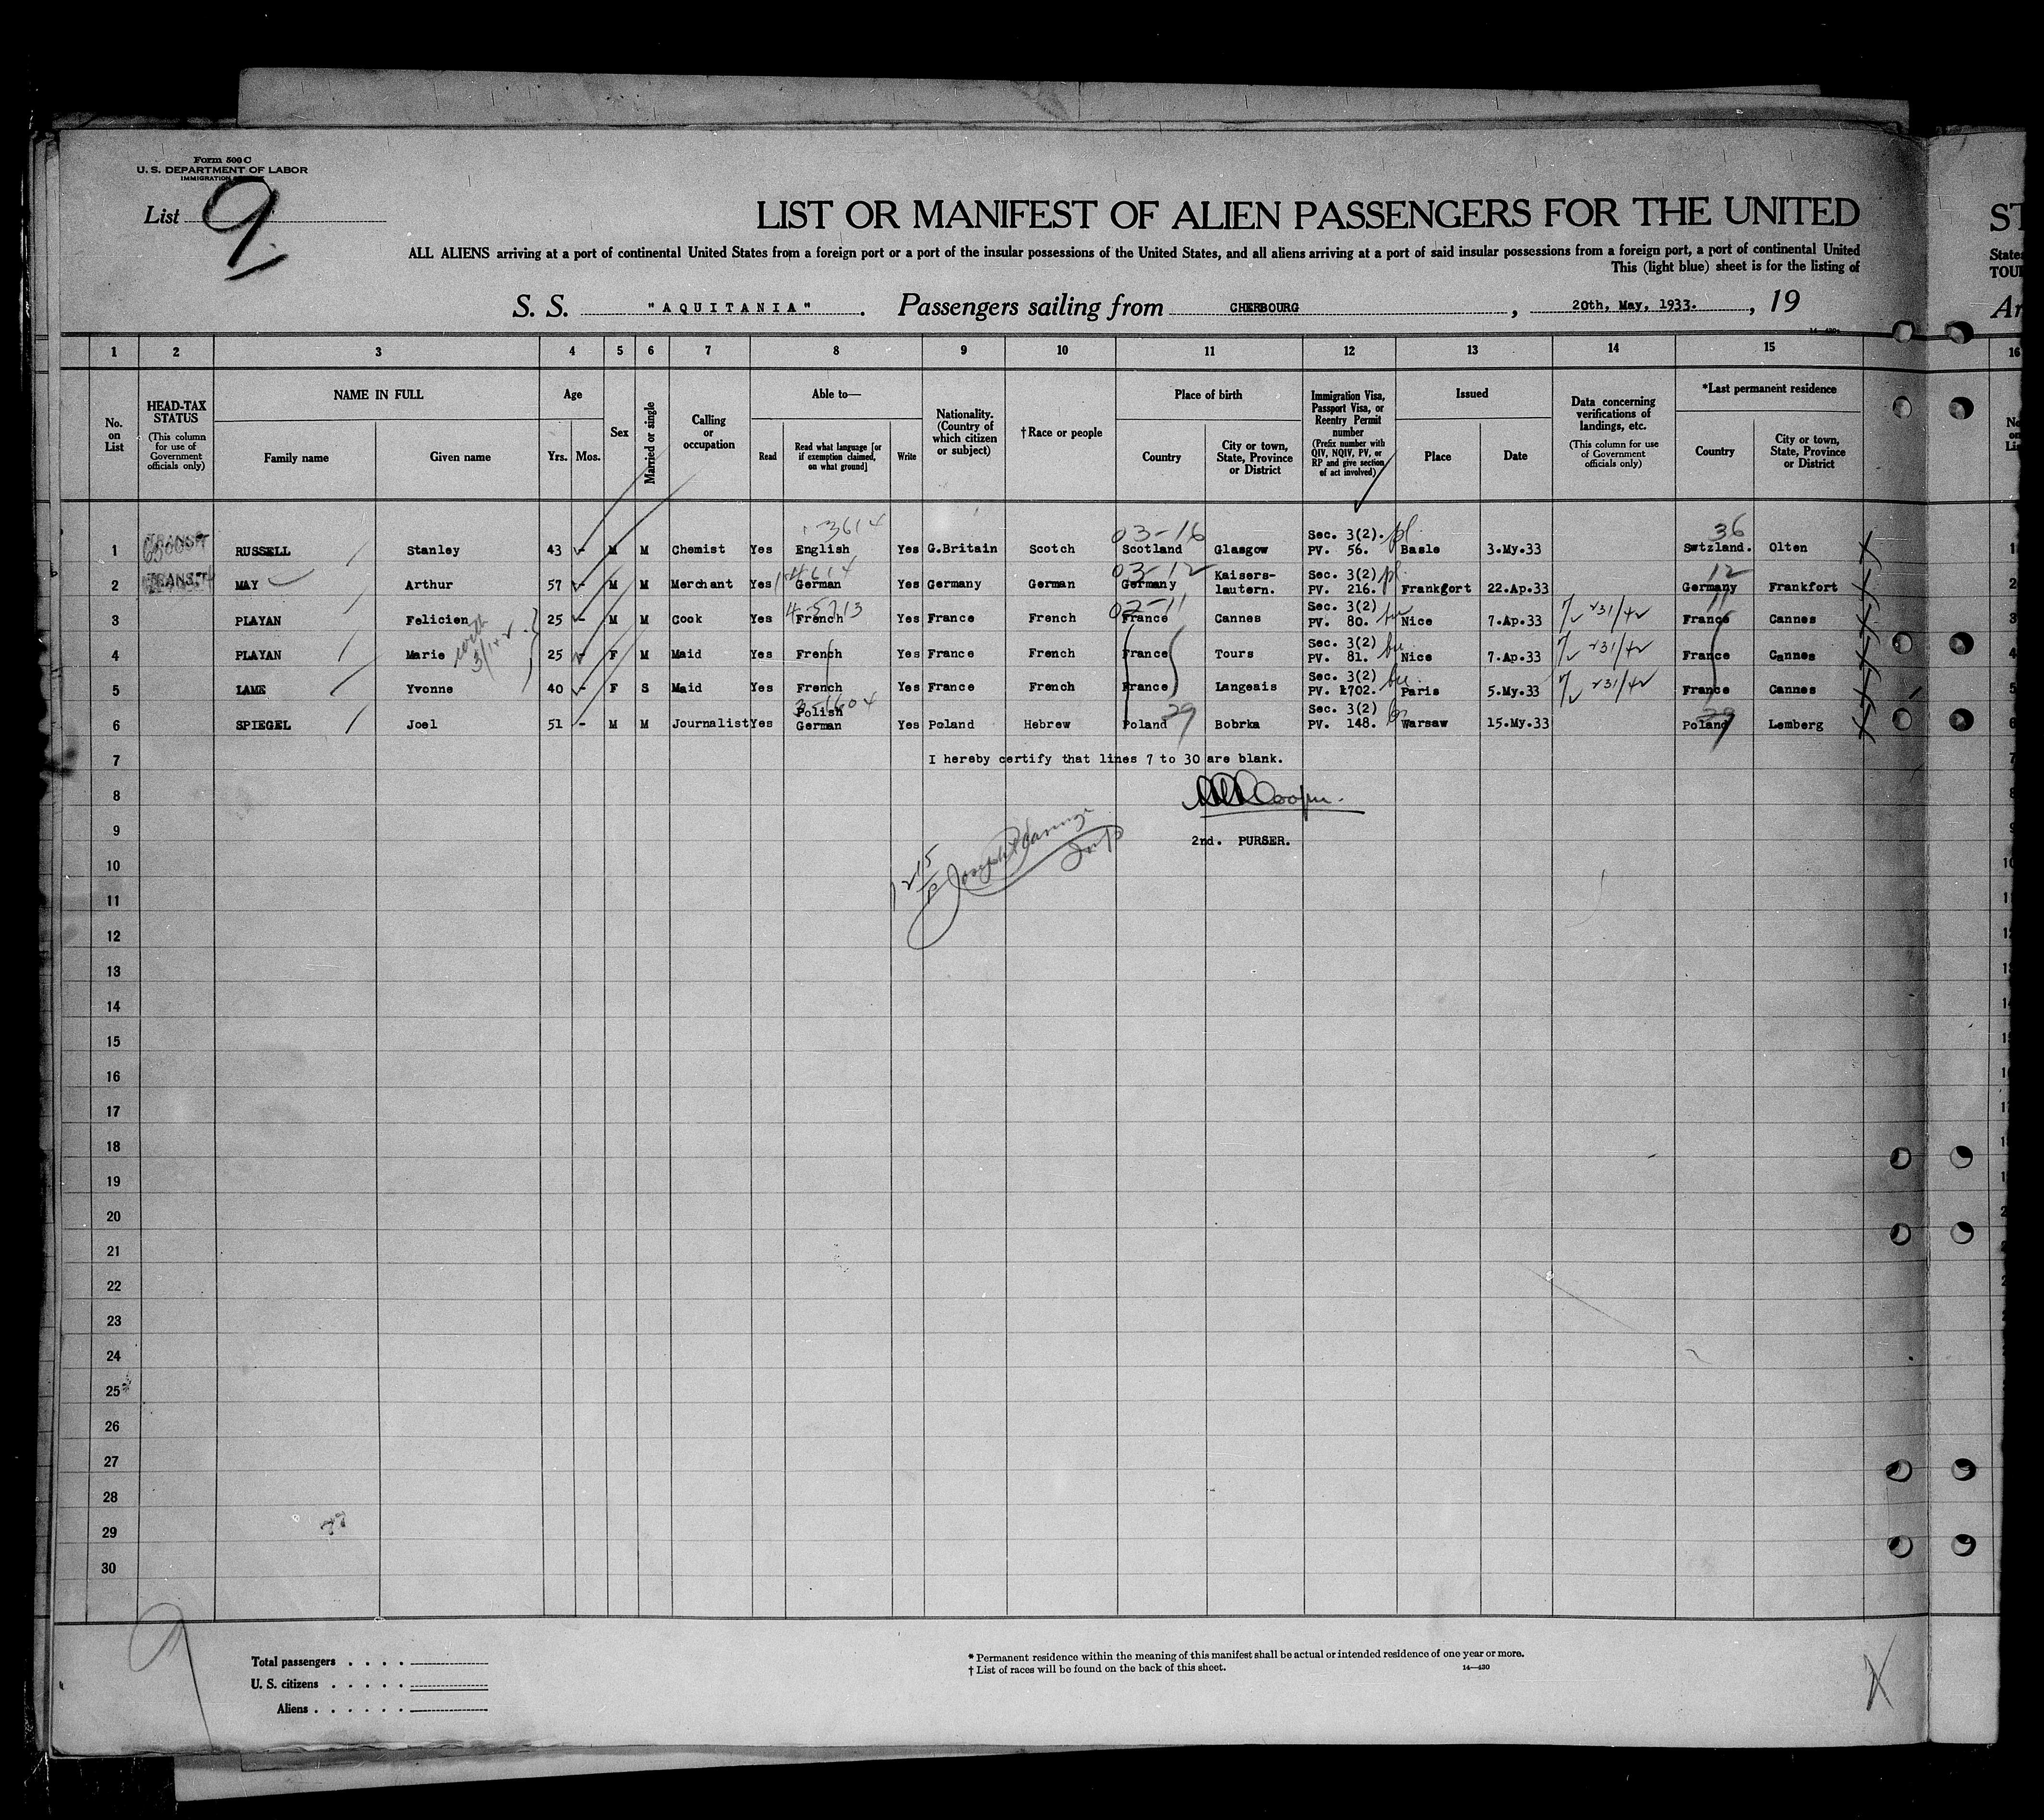 Form 500 C
U. S. DEPARTMENT OF LABOR
IMMIGRATION
List 9
LIST OR MANIFEST OF ALIEN PASSENGERS FOR THE UNITED
ST
ALL ALIENS arriving at a port of continental United States from a foreign port or a port of the insular possessions of the United States, and all aliens arriving at a port of said insular possessions from a foreign port, a port of continental United
This (light blue) sheet is for the listing of
S. S. "AQUITANIA". Passengers sailing from CHERBOURG, 20th, May, 1933., 19
14—430
1 2 3 4 5 6 7 8 9 10 11 12 13 14 15 16
No. on List
HEAD-TAX STATUS (This column for use of Government officials only)
NAME IN FULL
Family name Given name
Age
Yrs. Mos.
Sex
Married or single
Calling or occupation
Able to—
Read
Read what language [or if exemption claimed, on what ground]
Write
Nationality. (Country of which citizen or subject)
†Race or people
Place of birth
Country
City or town, State, Province or District
Immigration Visa, Passport Visa, or Reentry Permit number (Prefix number with QIV, NQIV, PV, or RP and give section of act involved)
Issued
Place Date
Data concerning verifications of landings, etc. (This column for use of Government officials only)
*Last permanent residence
Country
City or town, State, Province or District
3614 03-16 36
1 TRANSIT RUSSELL Stanley 43 - M M Chemist Yes English Yes G.Britain Scotch Scotland Glasgow Sec. 3(2). PV. 56. Basle 3.My.33 Swtzland. Olten
03-12 12
2 TRANSIT MAY Arthur 57 - M M Merchant Yes German Yes Germany German Germany Kaisers-lautern. Sec. 3(2) PV. 216. Frankgort 22.Ap.33 Germany Frankfort
02-11 11
3 PLAYAN Felicien 25 - M M Cook Yes French Yes France French France Cannes Sec. 3(2) PV. 80. Nice 7.Ap.33 France Cannes
4 PLAYAN Marie 25 - F M Maid Yes French Yes France French France Tours Sec. 3(2) PV. 81. Nice 7.Ap.33 France Cannes
5 LAME Yvonne 40 - F S Maid Yes French Yes France French France Langeais Sec. 3(2) PV. 1702. Paris 5.My.33 France Cannes
6 SPIEGEL Joel 51 - M M Journalist Yes Polish German Yes Poland Hebrew Poland 29 Bobrka Sec. 3(2) PV. 148. Warsaw 15.My.33 Poland 29 Lemberg
7 I hereby certify that lines 7 to 30 are blank.
8 Cooper.
9 2nd. PURSER.
10
11
12
13
14
15
16
17
18
19
20
21
22
23
24
25
26
27
28
29
30
Total passengers . . . .
U. S. citizens . . . . .
Aliens . . . . . .
* Permanent residence within the meaning of this manifest shall be actual or intended residence of one year or more.
† List of races will be found on the back of this sheet.
14—430